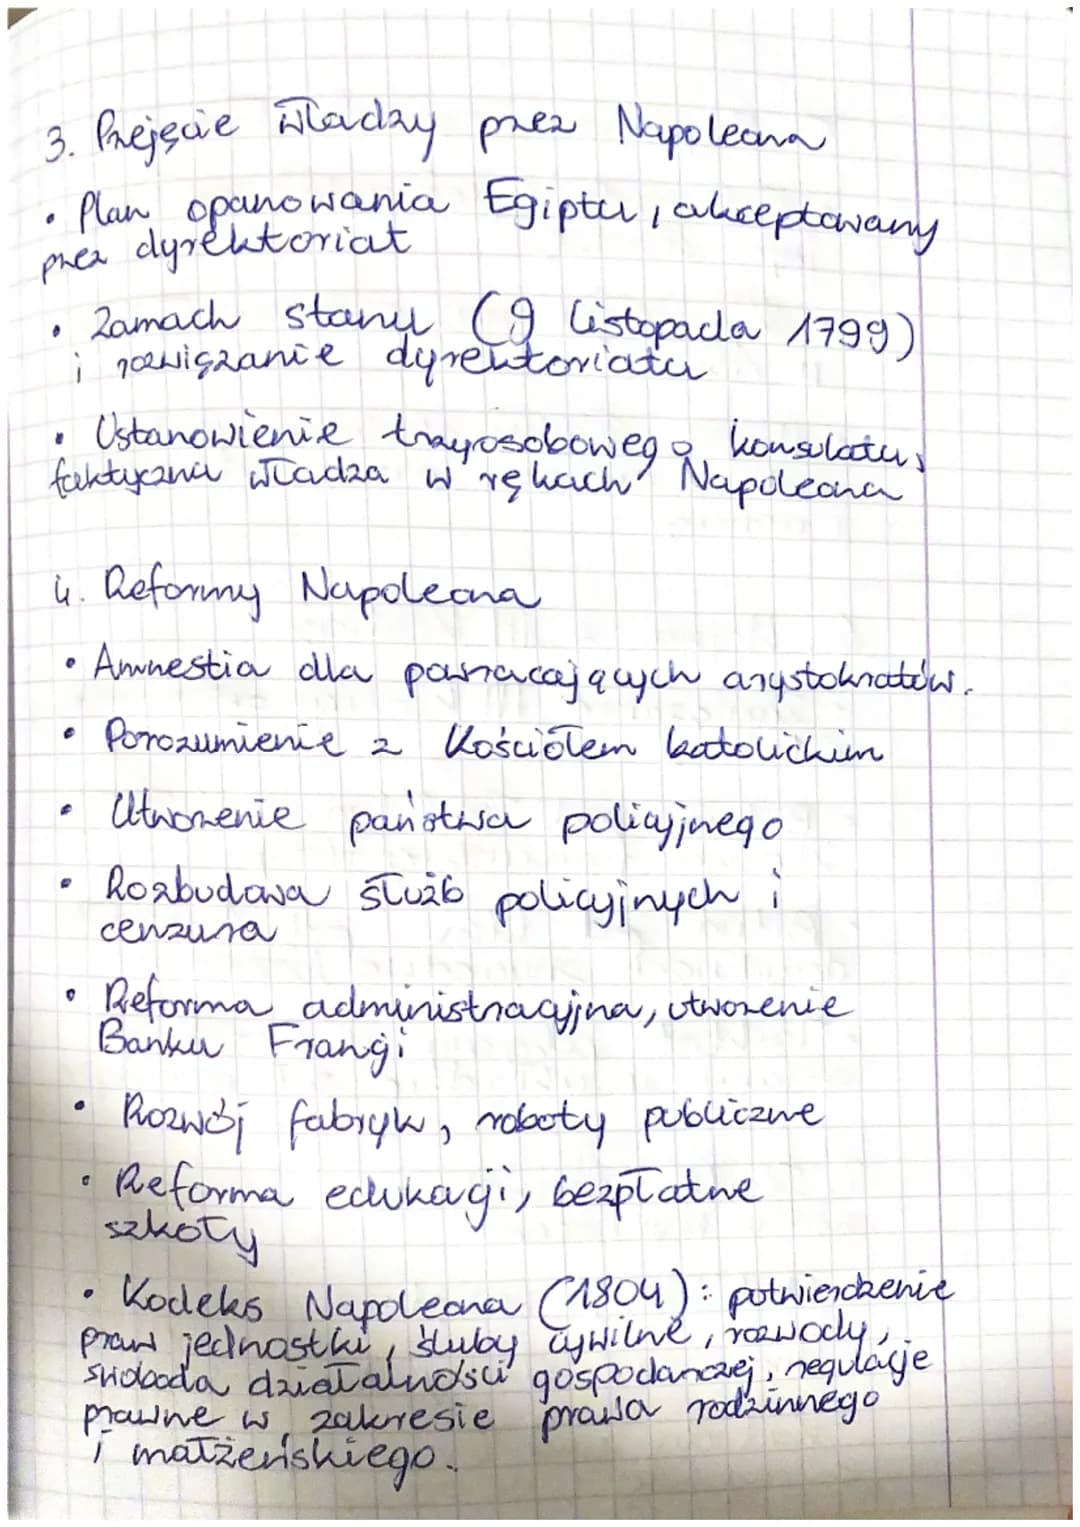 3. Przejęcie władzy przez Napoleona
• Plan opanowania Egiptu, akceptowany
przez dyrektoriat
• Zamach stanu (9 listopada 1799)
i rozwiązanie dyrektoriatu
• Ustanowienie trzyosobowego konsulatu,
faktyczna władza w rękach Napoleona
4. Reformy Napoleona
• Amnestia dla powracających arystokratów.
• Porozumienie z Kościołem katolickim
• Utworzenie państwa policyjnego
• Rozbudowa służb policyjnych i
cenzura
• Reforma administracyjna, utworzenie
Banku Francji
• Rozwój fabryk, roboty publiczne
• Reforma edukacji, bezpłatne
szkoły
• Kodeks Napoleona (1804): potwierdzenie
praw jednostki, śluby cywilne, rozwody,
swoboda działalności gospodarczej, regulacje
prawne w zakresie prawa rodzinnego
i małżeńskiego.